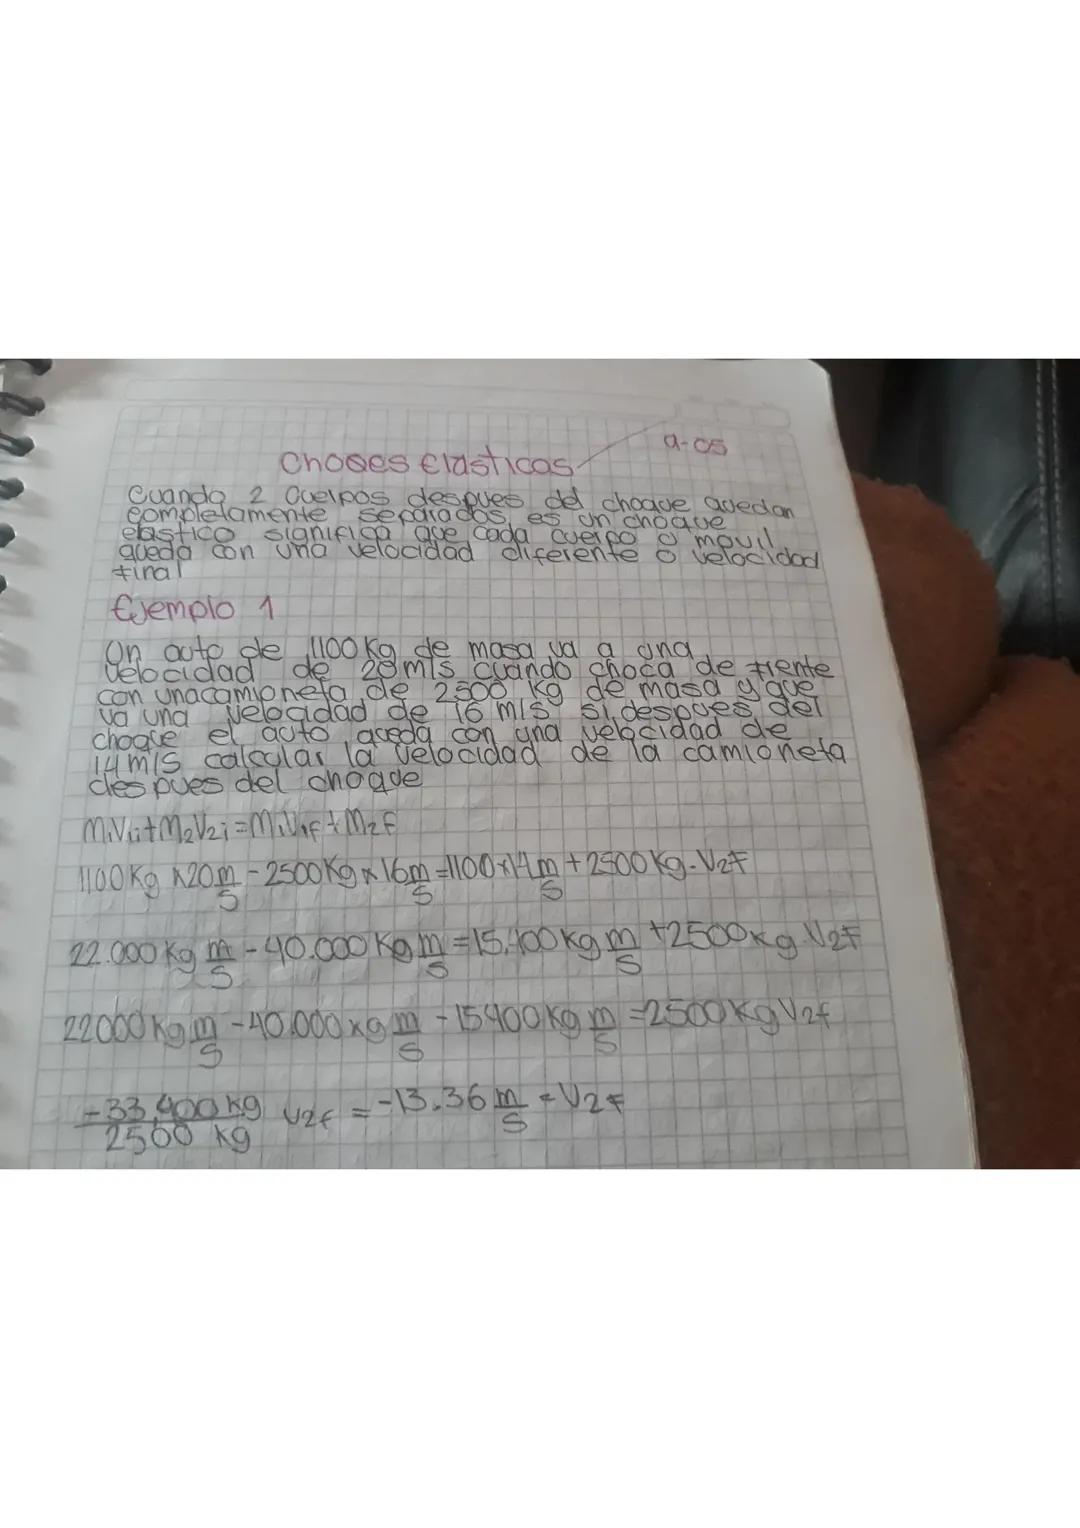 a-05
Choques Elasticos
Cuando 2 Cuerpos despues del choque quedan
completamente separados es un choque
elastico significa que cada cuerpo o movil
queda con una velocidad diferente o velocidad
final
Ejemplo 1
Un auto de 1100 Kg de masa va a una
velocidad de 20 m/s cuando choca de frente
con una camioneta de 2500 Kg de masa y que
va una velocidad de 16 m/s si despues del
choque el auto queda con una velocidad de
14 m/s calcular la velocidad de la camioneta
despues del choque
M₁V₁i+M₂V₂i=M₁V₁f+M₂f
1100 Kg x20 m/s - 2500 Kg x 16 m/s = 1100x14 m/s + 2500 Kg. V₂f
22.000 Kg m/s - 40.000 Kg m/s = 15.400 Kg m/s + 2500 Kg V₂f
22000 Kg m/s - 40.000 Kg m/s - 15400 Kg m/s = 2500 Kg V₂f
-33.400 Kg / 2500 Kg V₂f = -13.36 m/s = V₂f